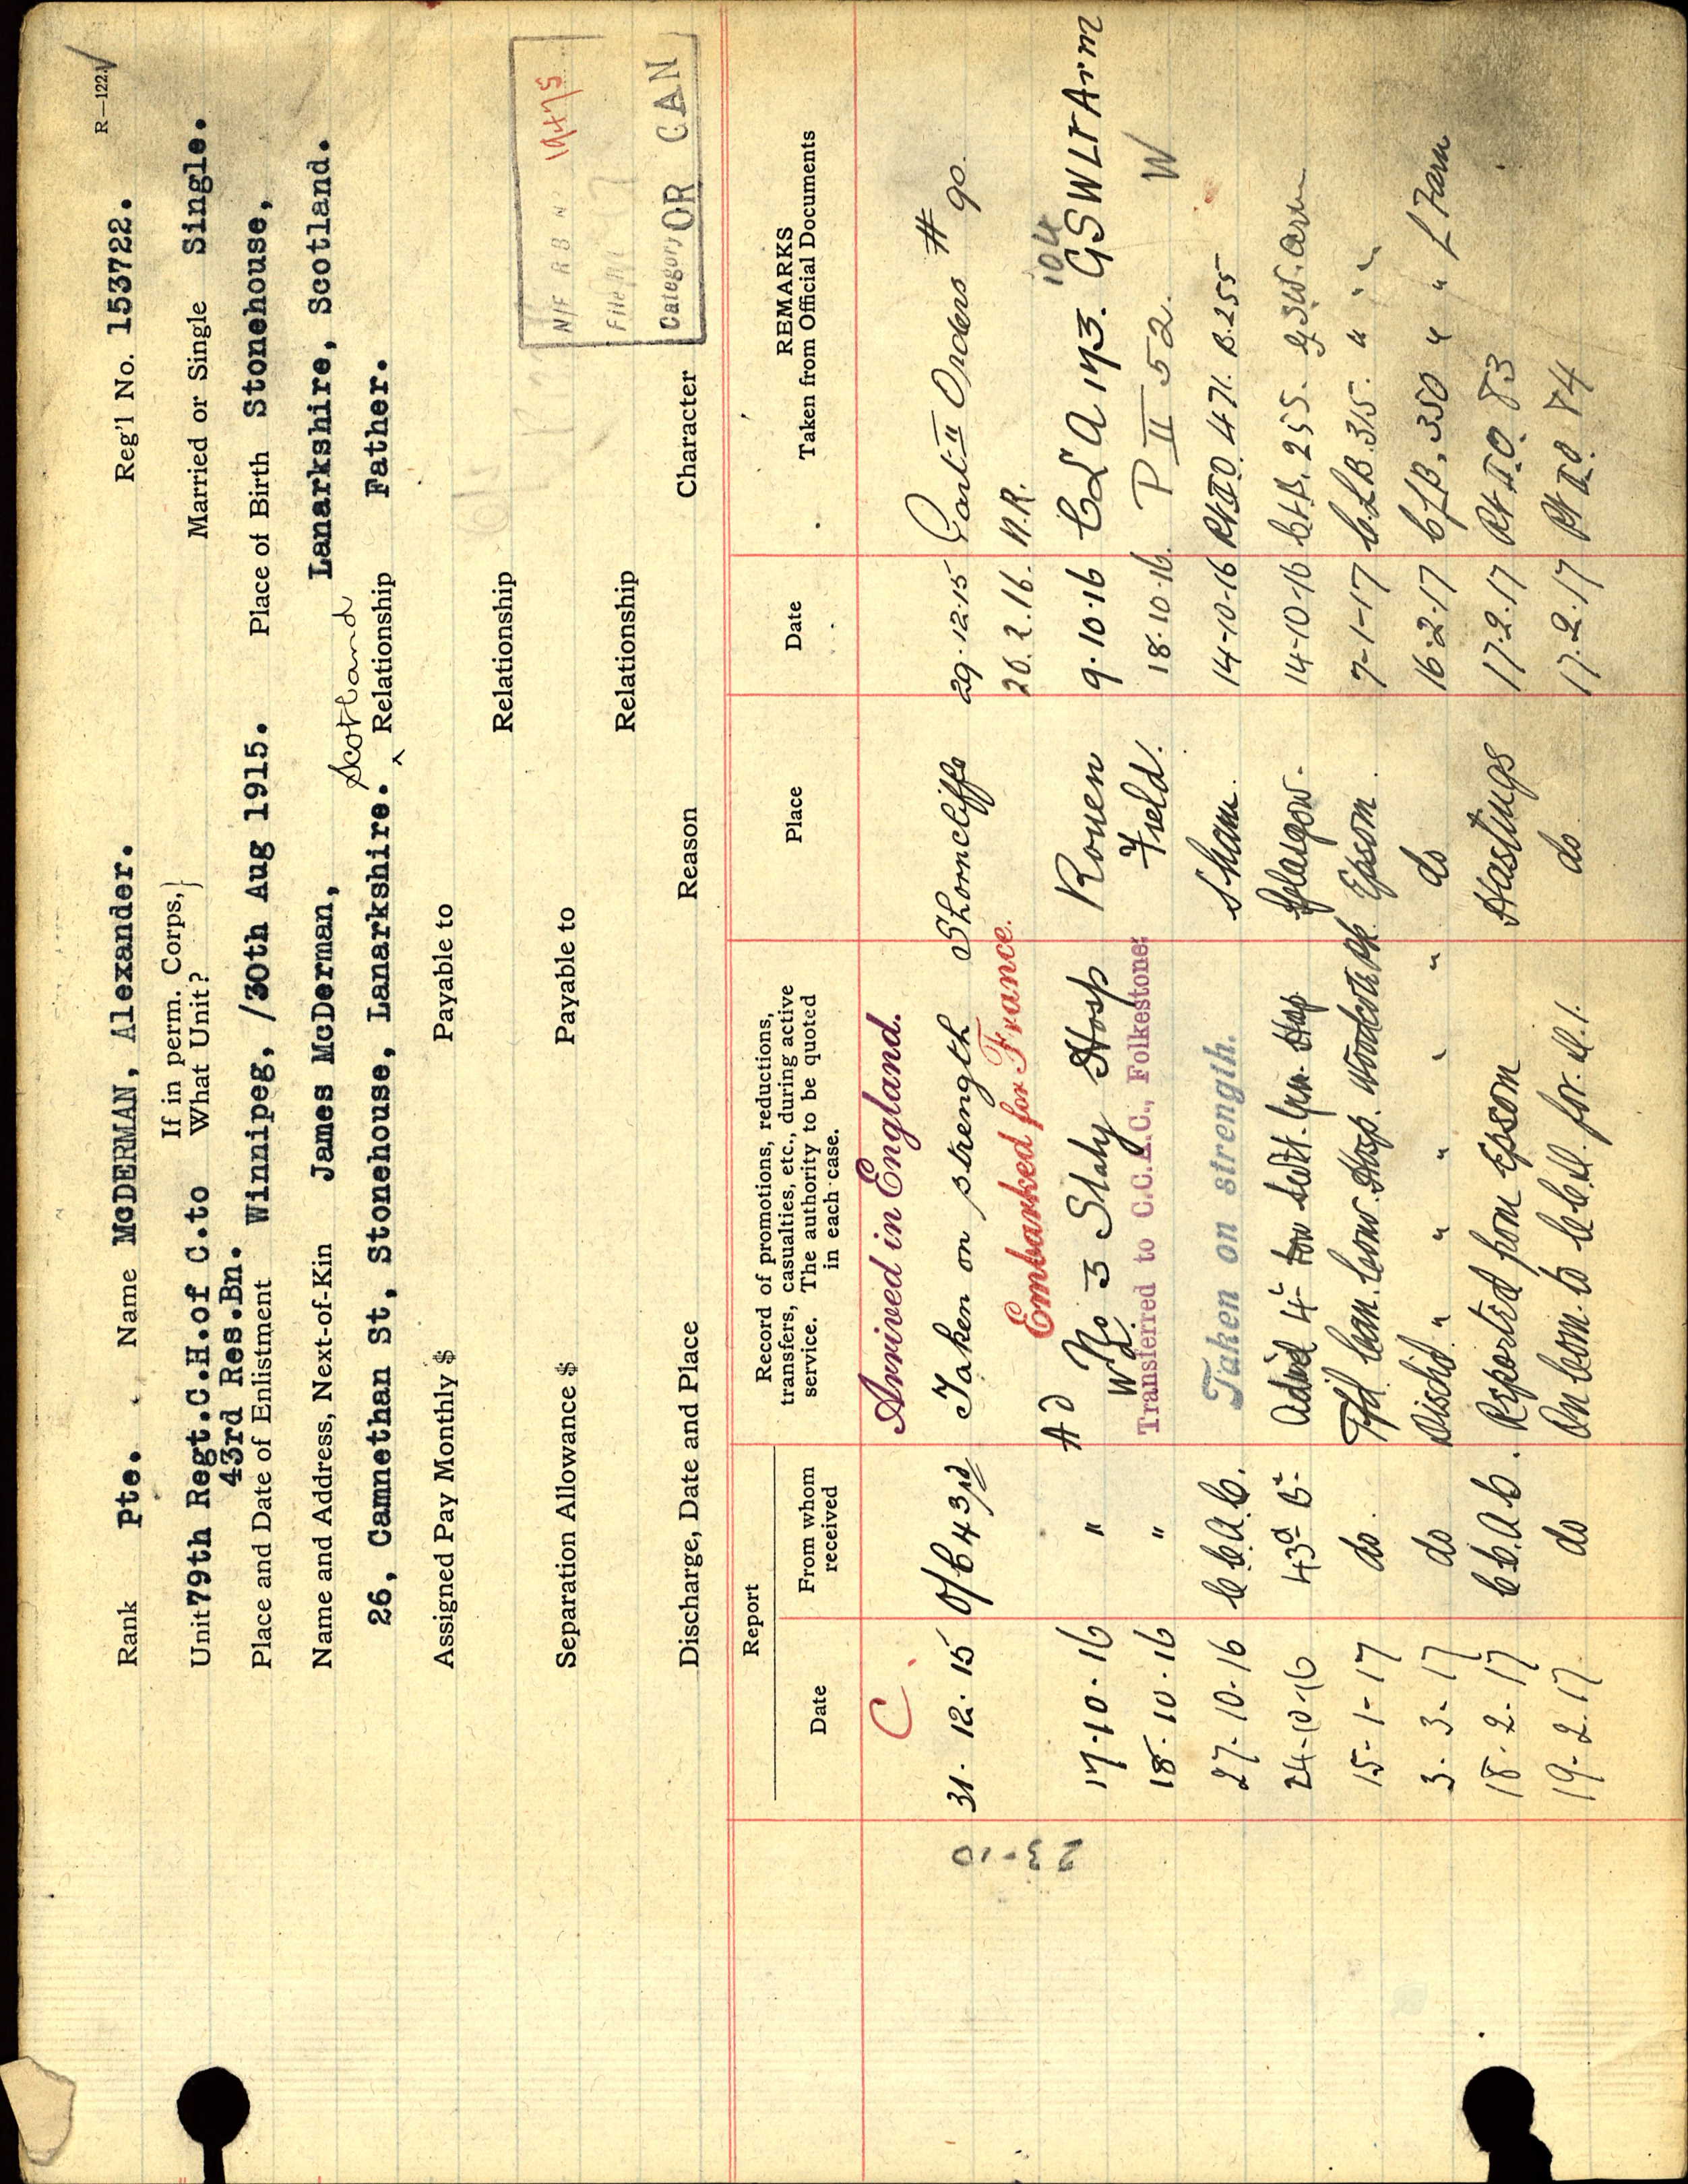 R—122.
Rank Pte. Name McDERMAN, Alexander. Reg'l No. 153722.
Unit 79th Regt.C.H.of C.to If in perm. Corps, What Unit? Married or Single Single.
43rd Res.Bn.
Place and Date of Enlistment Winnipeg, /30th Aug 1915. Place of Birth Stonehouse,
Name and Address, Next-of-Kin James McDerman, Lanarkshire, Scotland.
Scotland
26, Camnethan St, Stonehouse, Lanarkshire. ^ Relationship Father.
Assigned Pay Monthly $ Payable to Relationship
Separation Allowance $ Payable to Relationship
N/F R B N 19475
File No
Category OR CAN
Discharge, Date and Place Reason Character
Report
Date
From whom received
Record of promotions, reductions, transfers, casualties, etc., during active service. The authority to be quoted in each case.
Place
Date
REMARKS
Taken from Official Documents
C Arrived in England.
31. 12. 15 O/C 43rd Taken on strength Shorncliffe 29.12.15 Part II Orders # 90
Embarked for France. 20.2.16. N.R.
104
17-10-16 " Ad No 3 Staty Hosp Rouen 9.10.16 CL A 173. GSW Lt Arm
18.10.16 " Wd. Transferred to C.C.A.C., Folkestone. Field. 18.10.16. P II 52. W
27-10-16 C.C.A.C. Taken on strength. S'ham. 14-10-16 Pt II O. 471. B.255
24-10-16 43d Bn Admd 4th Scott. Gen. Hosp Glasgow. 14-10-16 C.L.B. 255. G.S.W. arm
15-1-17 do. Tfd Can. Conv. Hosp. Woodcote Pk. Epsom. 7-1-17 C.L.B. 315. " " "
3-3-17 do Dischd. " " " " " do 16-2-17 CLB, 350 " " L F arm
18-2-17 C.C.A.C. Reported from Epsom Hastings 17.2.17 Pt II O. 83
19-2-17 do On Com. to do 17.2.17 Pt II O. 84
23-10